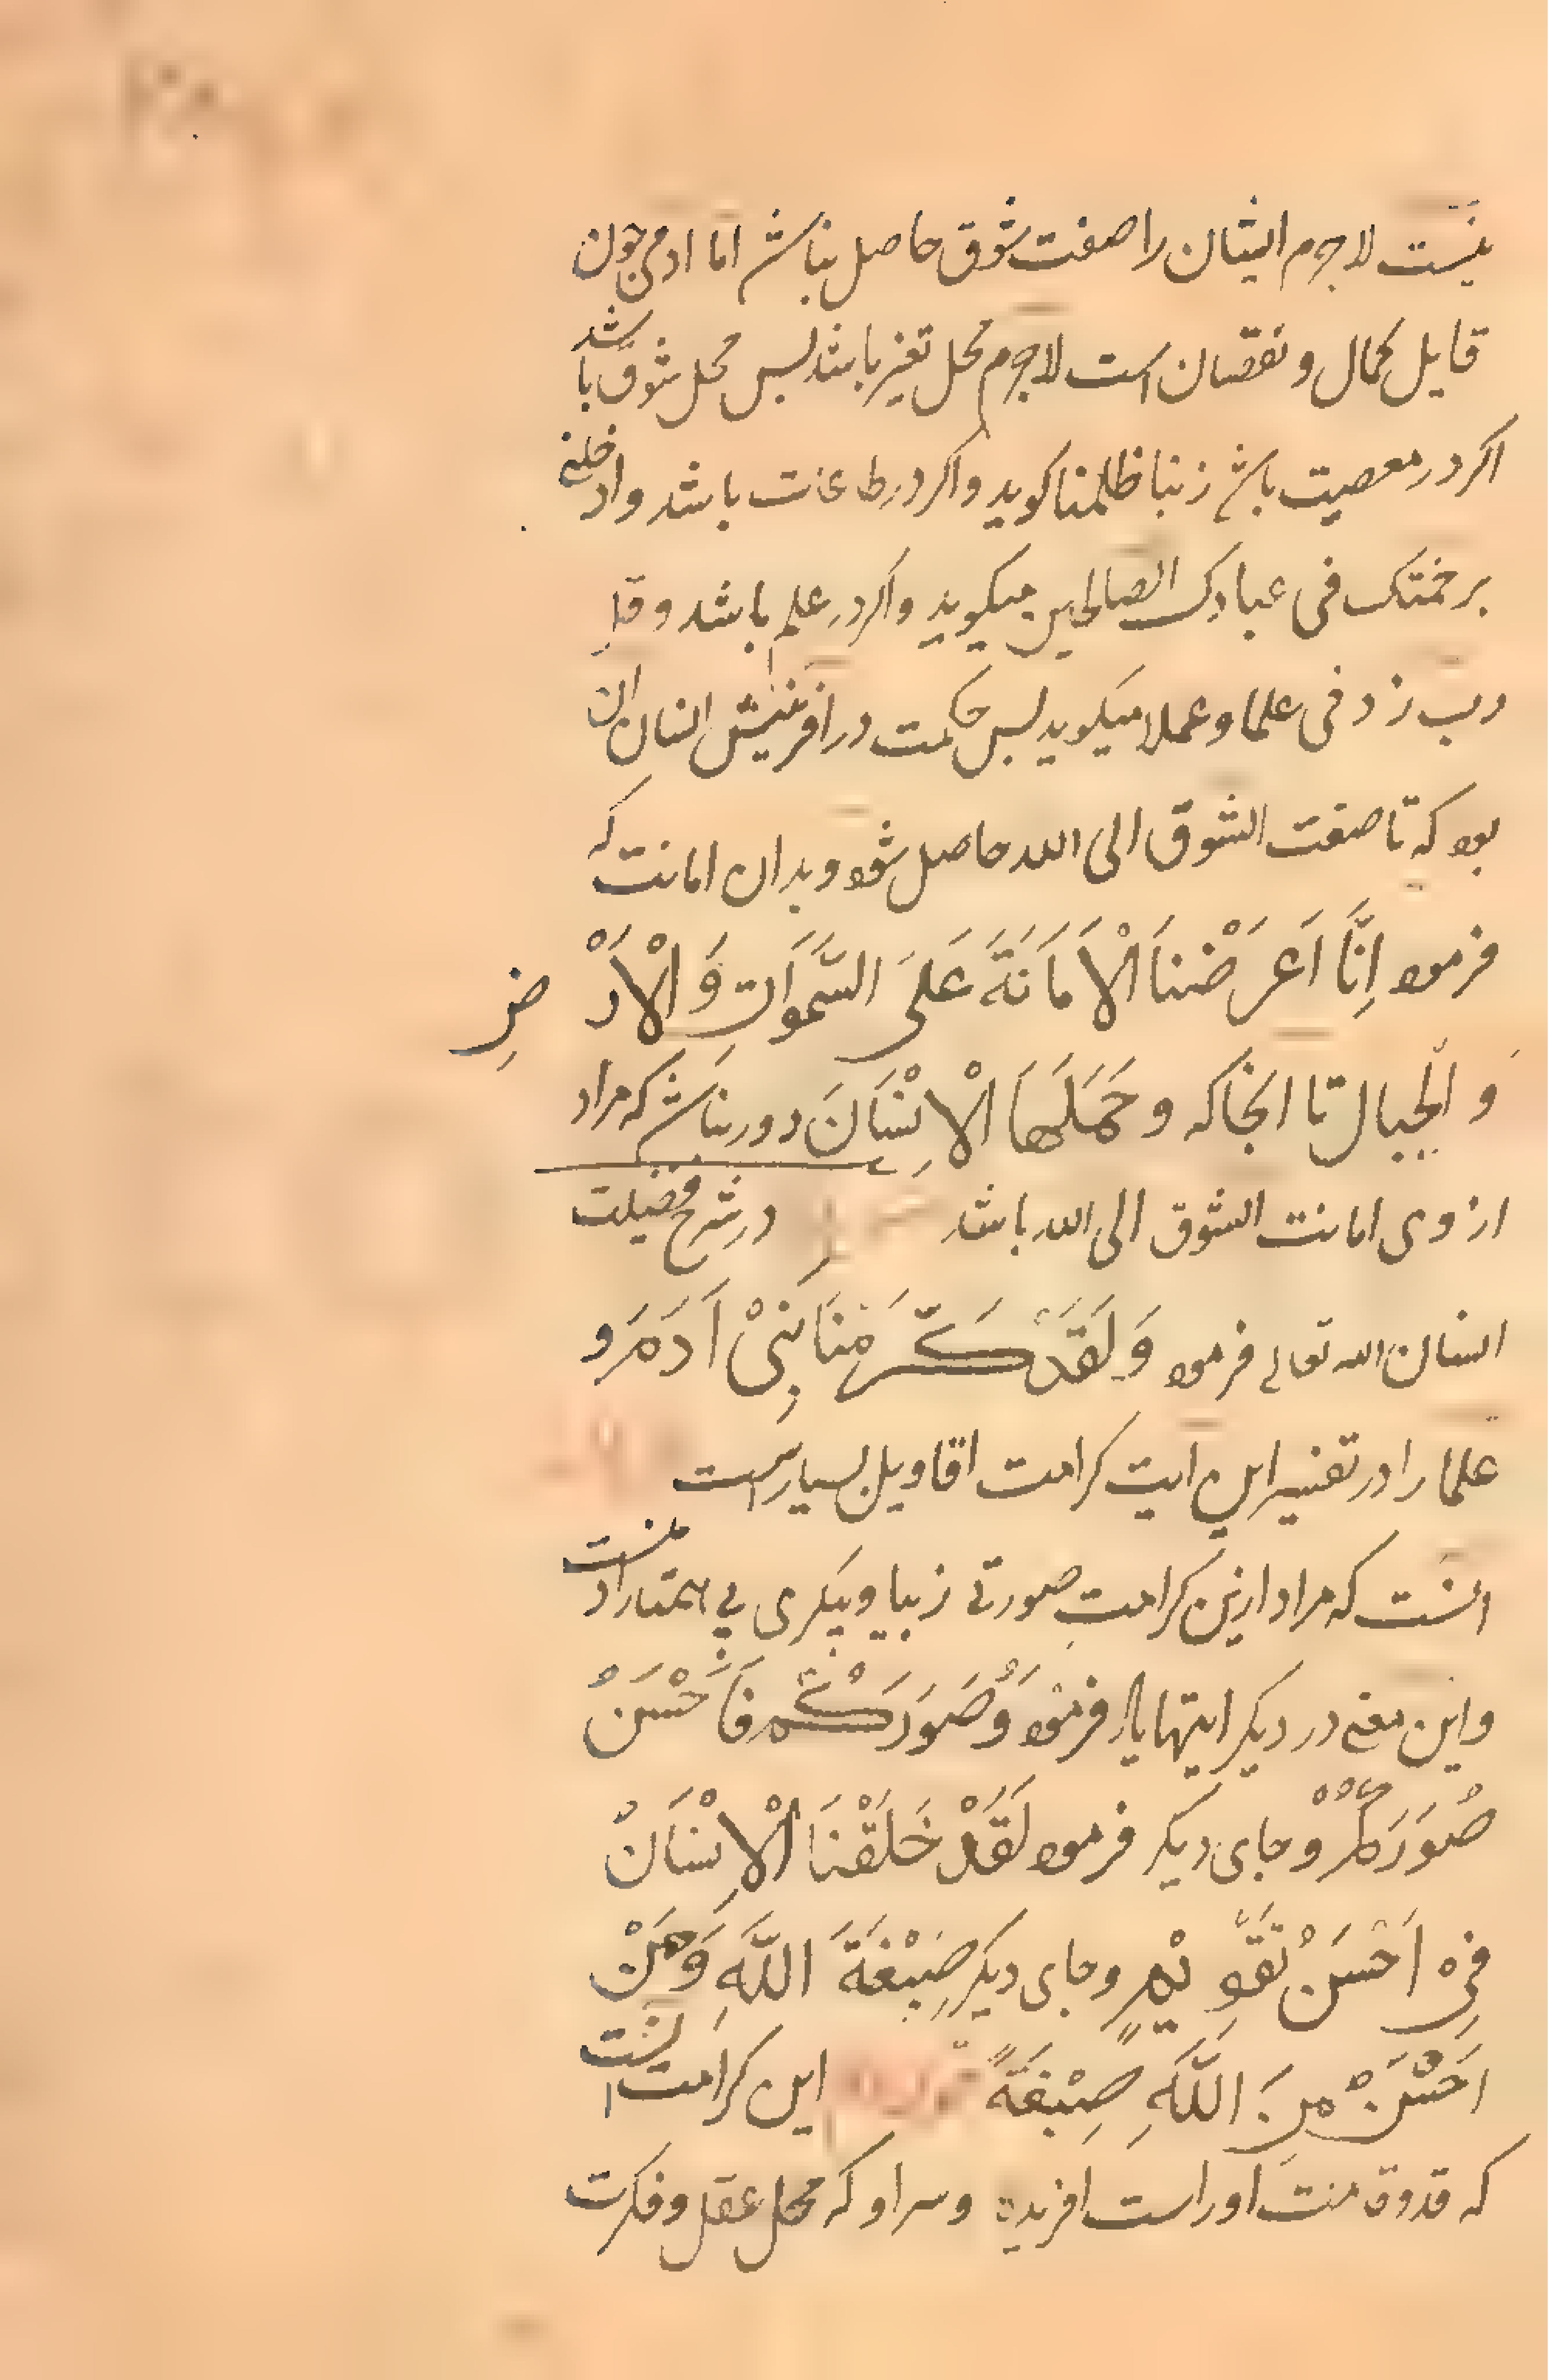 نیست لاجرم ایشان را صفت شوق حاصل نباشد اما ادمی جون
قابل کمال و نقصان است لاجرم محل تغیر باشد لبس محل شوق باشد
اکر در معصیت باشد ربنا ظلمنا کوید واکر در طاعت باشد وادخلنی
برحمتک فی عبادک الصالحین میکوید واکر در علم باشد و قل
رب زدنی علما وعملا میکوید لبس حکمت در افرینش انسان ان
بود که تا صفت الشوق الی الله حاصل شود وبدان امانت که
فرمود اِنَّا اَعَرَضْنَا الْاَمَانَةَ عَلَی السَّمَوَاتِ وَ الْاَرْضِ
وَ الْجِبَال تا انجا که و حَمَلَهَا الْاِنْسَانَ دور نباشد که مراد
از وی امانت الشوق الی الله باشد در شرح فضیلت
انسان الله تعالی فرمود وَلَقَدْ کَرَّمْنَا بَنِیْ اَدَمَ و
علما را در تفسیر این ایت کرامت اقاویل بسیار است
انست که مراد ازین کرامت صورتی زیبا وپیکری بی همتا داد
واین معنی در دیکر ایتها یاد فرمود وَصَوَرَکُمْ فَاَحْسَنُ
صُوَرَکُمْ وجای دیکر فرمود لَقَدْ خَلَقْنَا الْاِنْسَانُ
فِی اَحْسَنْ تَقْوِیْمٍ وجای دیکر صِبْغَةَ اللَّهِ وَمَنْ
اَحْسَنْ مِنَ اللَّهِ صِبْغَةً این کرامت انست
که قد وقامت او راست افریده وسر او که محل عقل وفکرت